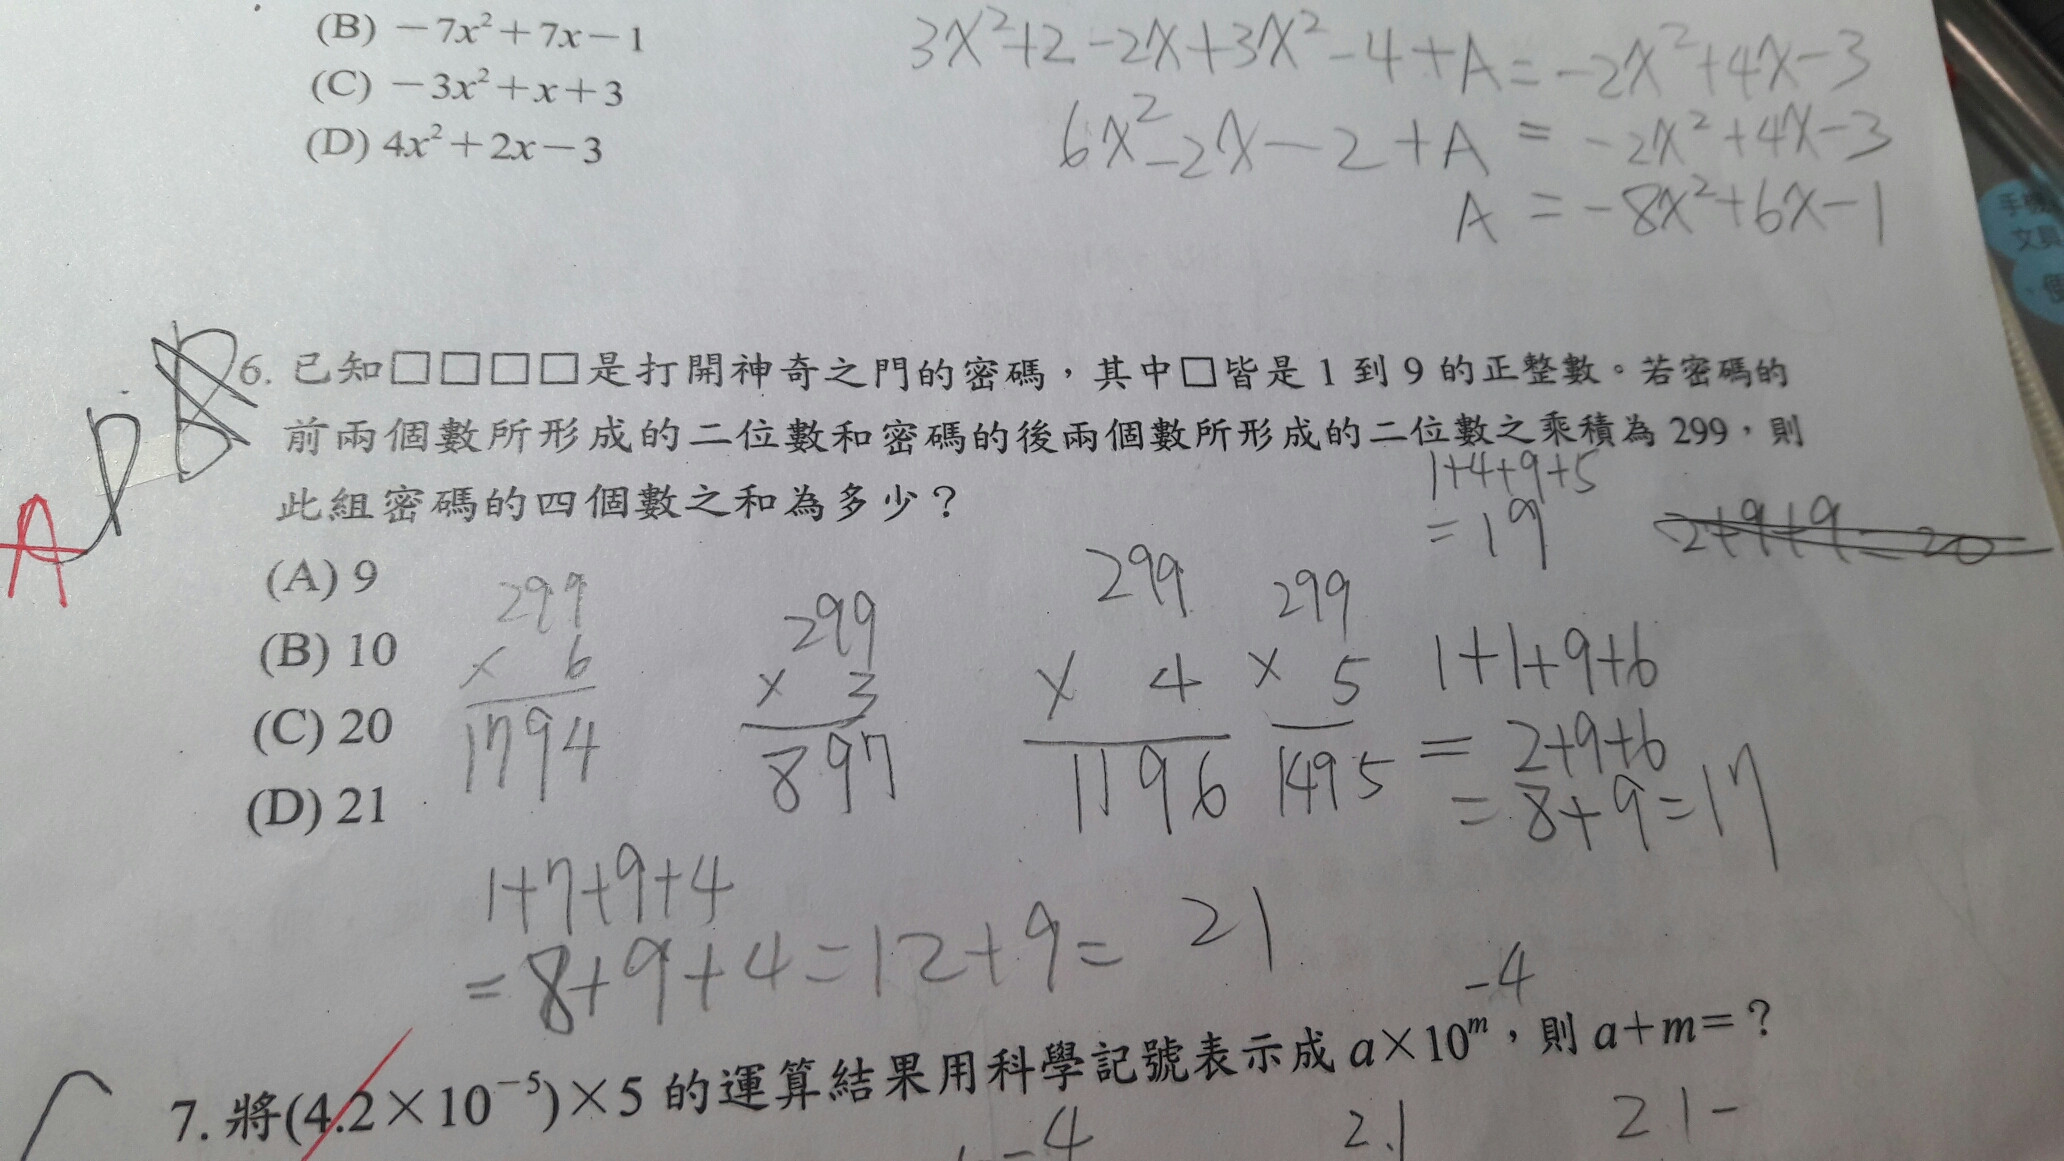 (B) －7x²＋7x－1
(C) －3x²＋x＋3
(D) 4x²＋2x－3
3x²+2-2x+3x²-4+A=-2x²+4x-3
6x²-2x-2+A = -2x²+4x-3
A = -8x²+6x-1
B
D
A
6. 已知□□□□是打開神奇之門的密碼，其中□皆是 1 到 9 的正整數。若密碼的
前兩個數所形成的二位數和密碼的後兩個數所形成的二位數之乘積為 299，則
此組密碼的四個數之和為多少？
1+4+9+5
=19
2+9+9=20
(A) 9
(B) 10
(C) 20
(D) 21
299
× 6
1794
299
× 3
897
299
× 4
1196
299
× 5
1495
1+1+9+6
= 2+9+6
= 8+9=17
1+7+9+4
=8+9+4=12+9= 21
-4
7. 將(4.2×10⁻⁵)×5 的運算結果用科學記號表示成 a×10ᵐ，則 a＋m＝？
-4
2.1
2.1-
手
文具